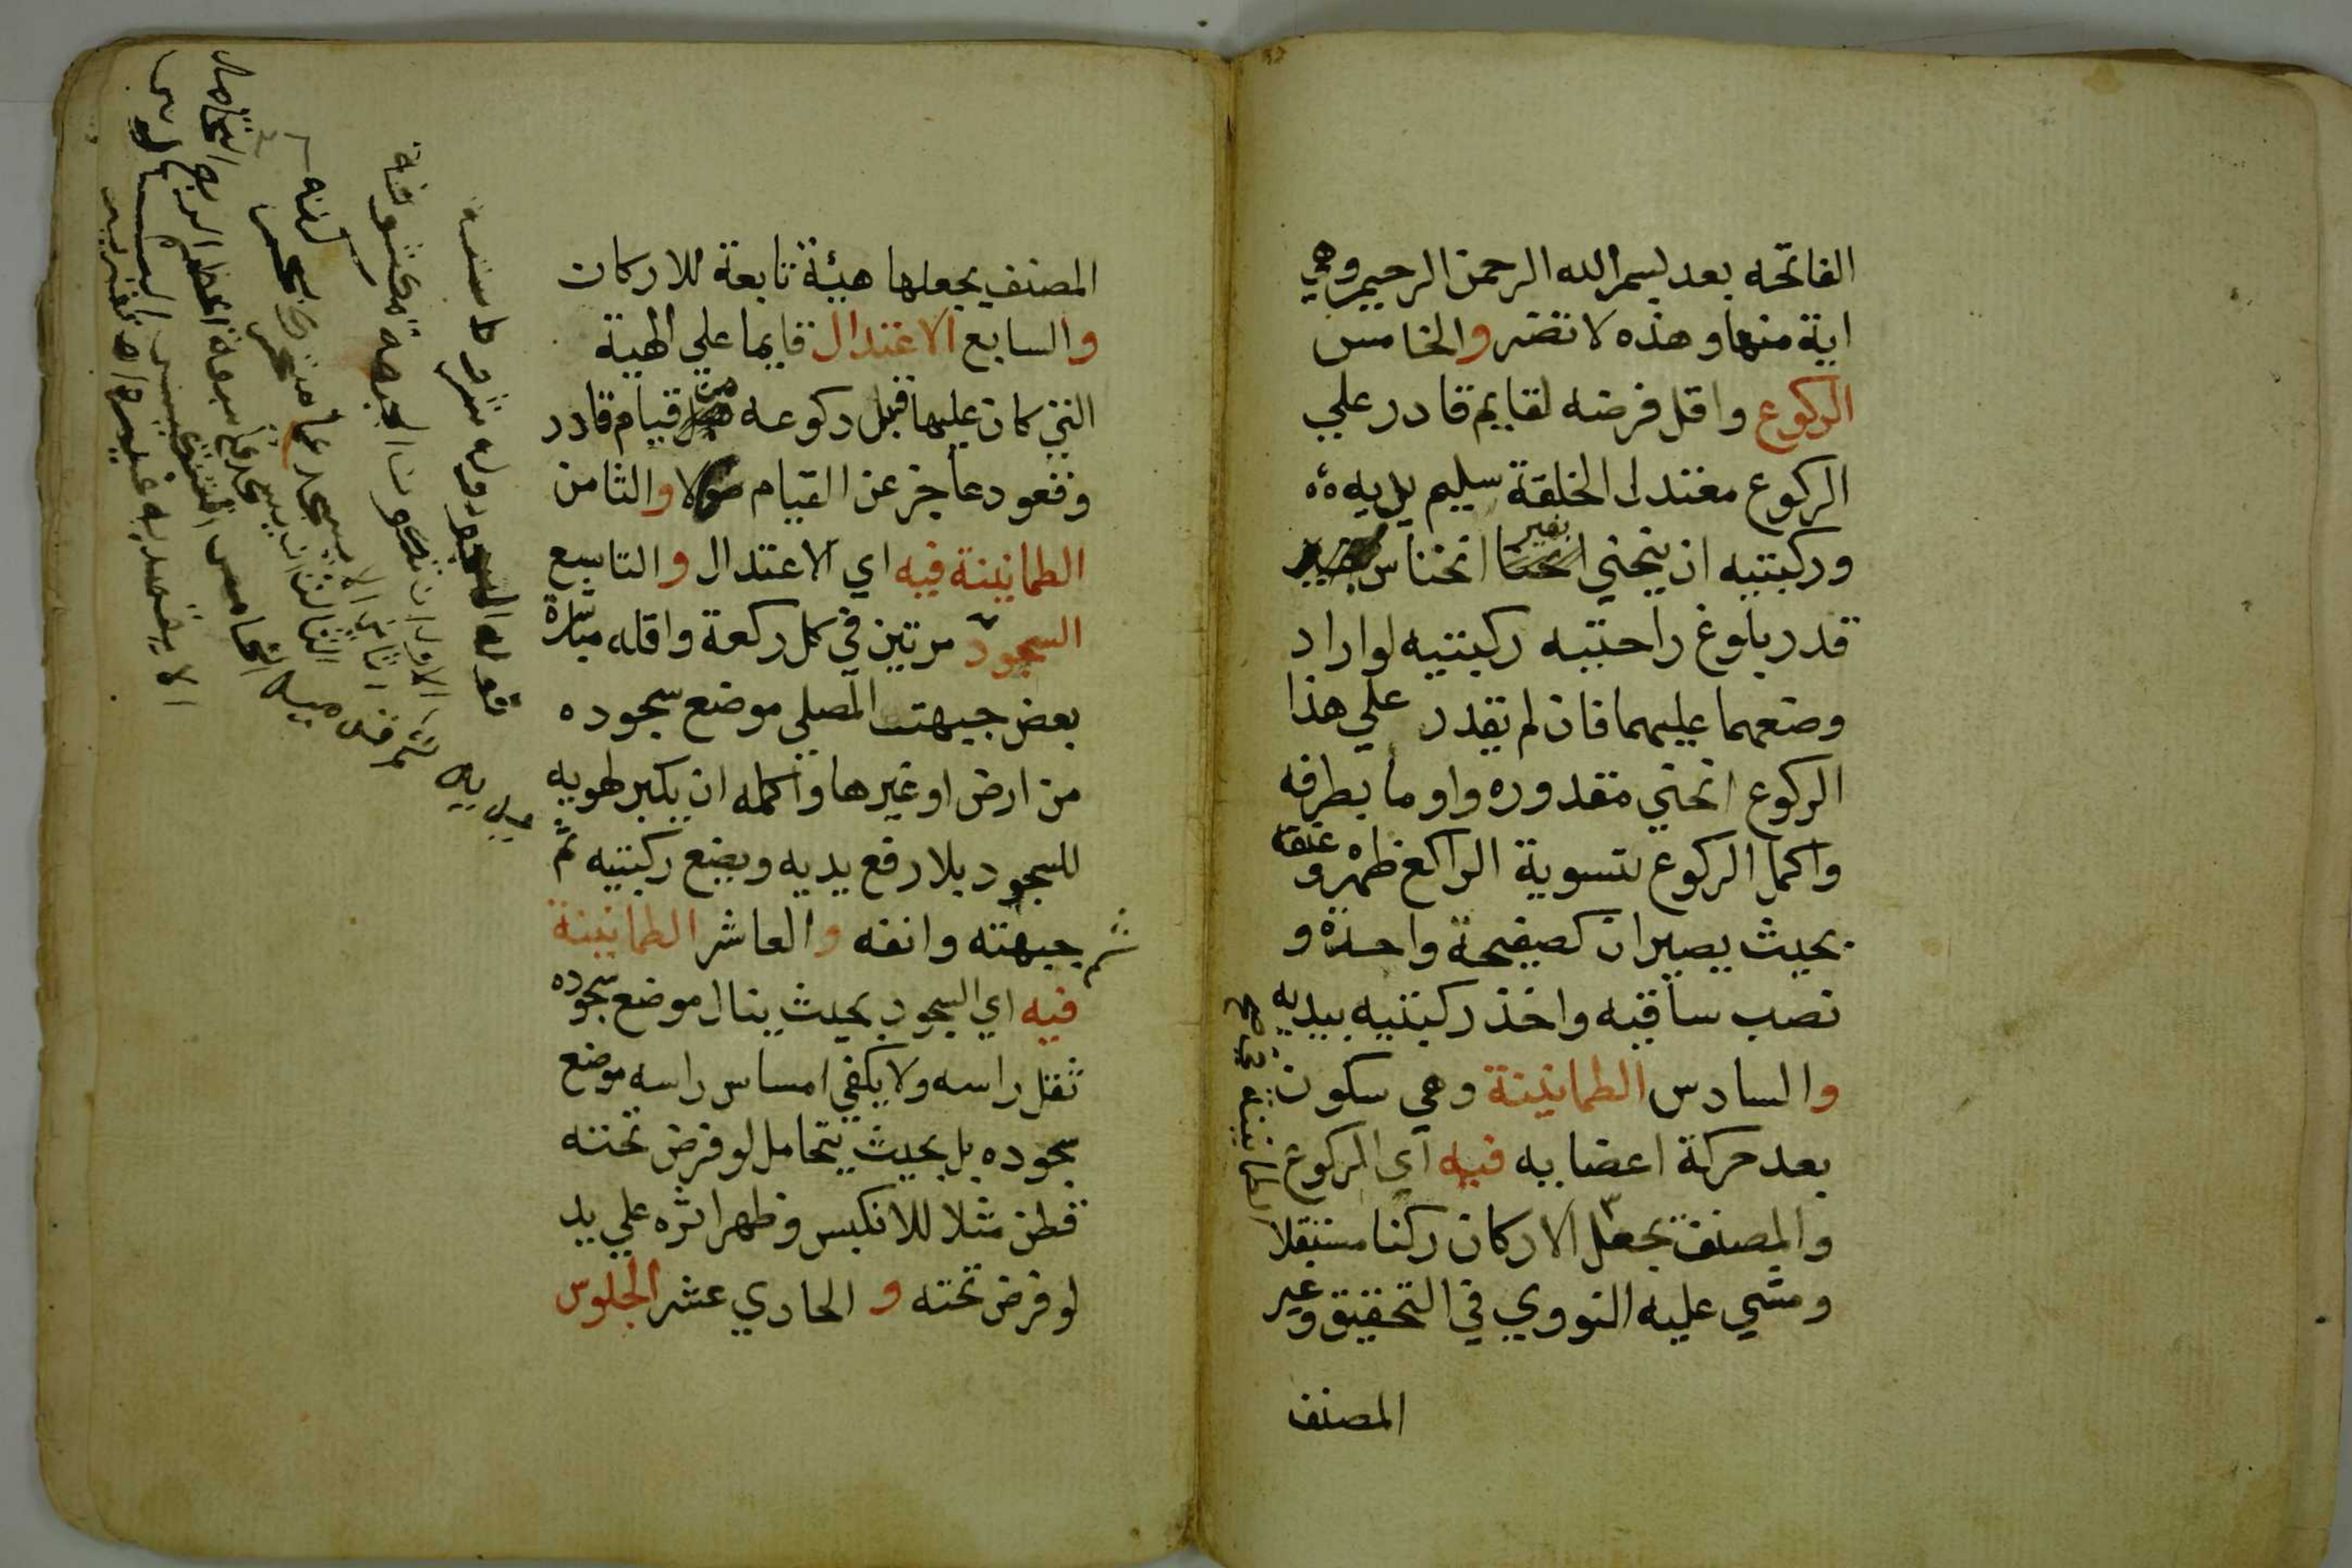 الفاتحه بعد بسم الله الرحمن الرحيم وهي
اية منها وهذه لا تضر والخامس
الركوع واقل فرضه لقايم قادر علي
الركوع معتدل الخلقة سليم يديه
وركبتيه ان ينحني بغير انخناس
قدر بلوغ راحتيه ركبتيه لو اراد
وضعهما عليهما فان لم يقدر علي هذا
الركوع انحني مقدوره واوما بطرفه
واكمل الركوع تسوية الراكع ظهره وعنقه
بحيث يصيران كصفيحة واحدة و
نصب ساقيه واخذ ركبتيه بيديه
والسادس الطمانينة وهي سكون
بعد حركة اعضايه فيه اي الركوع
والمصنف يجعل الاركان ركنا مستقلا
ومشي عليه النووي في التحقيق وغير
الطمانينة في
المصنف
المصنف يجعلها هيئة تابعة للاركان
والسابع الاعتدال قايما علي الهية
التي كان عليها قبل ركوعه من قيام قادر
وقعود عاجز عن القيام والثامن
الطمانينة فيه اي الاعتدال والتاسع
السجود مرتين في كل ركعة واقله مباشرة
بعض جبهت المصلي موضع سجوده
من ارض او غيرها واكمله ان يكبر لهويه
للسجود بلا رفع يديه ويضع ركبتيه ثم
ثم جبهته وانفه والعاشر الطمانينة
فيه اي السجود بحيث ينال موضع سجوده
ثقل راسه ولا يكفي امساس راسه موضع
سجوده بل بحيث يتحامل لو فرض تحته
قطن مثلا لانكبس وظهر اثره علي يد
لو فرض تحته و الحادي عشر الجلوس
قوله السجود وله شروط ستة
الاول ان تكون الجبهة مكشوفة